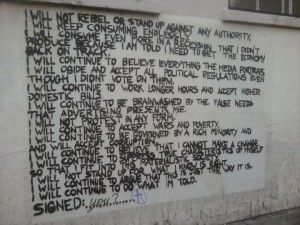 I WILL NOT REBEL OR STAND UP AGAINST ANY AUTHORITY.
I WILL KEEP CONSUMING ENDLESSLY
I WILL CONSUME EVEN MORE IN A RECESSION, THAT I DIDN'T
PRODUCE BECAUSE I AM TOLD I NEED TO GET THE ECONOMY
BACK ON TRACK.
I WILL CONTINUE TO BELIEVE EVERYTHING THE MEDIA PORTRAYS
I WILL OBIDE AND ACCEPT ALL POLITICAL REGULATIONS EVEN
THOUGH I DIDN'T VOTE ON THEM.
I WILL CONTINUE TO WORK LONGER HOURS AND ACCEPT HIGHER
DOMESTIC BILLS
I WILL CONTINUE TO BE BRAINWASHED BY THE FALSE NEEDS
THAT ADVERTISING PRESENTS ME.
I WILL NOT PROTEST IN ANY FORM.
I WILL CONTINUE TO ACCEPT WARS AND POVERTY.
I WILL CONTINUE TO BE GOVERNED BY A RICH MINORITY AND
AND WILL ACCEPT CORRUPTION.
I WILL CONTINUE TO BELIEVE THAT I CANNOT MAKE A CHANGE
I WILL CONTINUE TO SUPPRESS CHARACTERISTICS OF MYSELF
SO THAT I MATERIALISTIC SOCIETY
I WILL NOT STAND UP FOR WHAT I KNOW IS RIGHT
I WILL CONTINUE TO THAT THIS IS JUST THE WAY IT IS.
I WILL CONTINUE TO DO WHAT IM TOLD.
SIGNED: